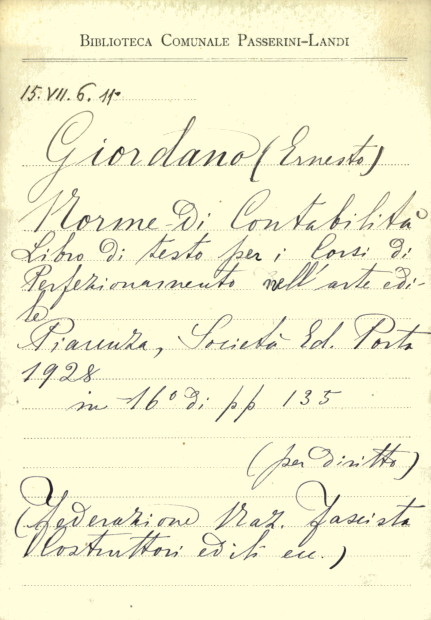 BIBLIOTECA COMUNALE PASSERINI-LANDI
15. VII. 6. 11º
Giordano (Ernesto)
Norme di Contabilità
Libro di testo per i Corsi di
Perfezionamento nell'arte edi-
le
Piacenza, Società Ed. Porta
1928
in 16º di pp 135
(per diritto)
(Federazione Naz. Fascista
Costruttori edili ecc.)